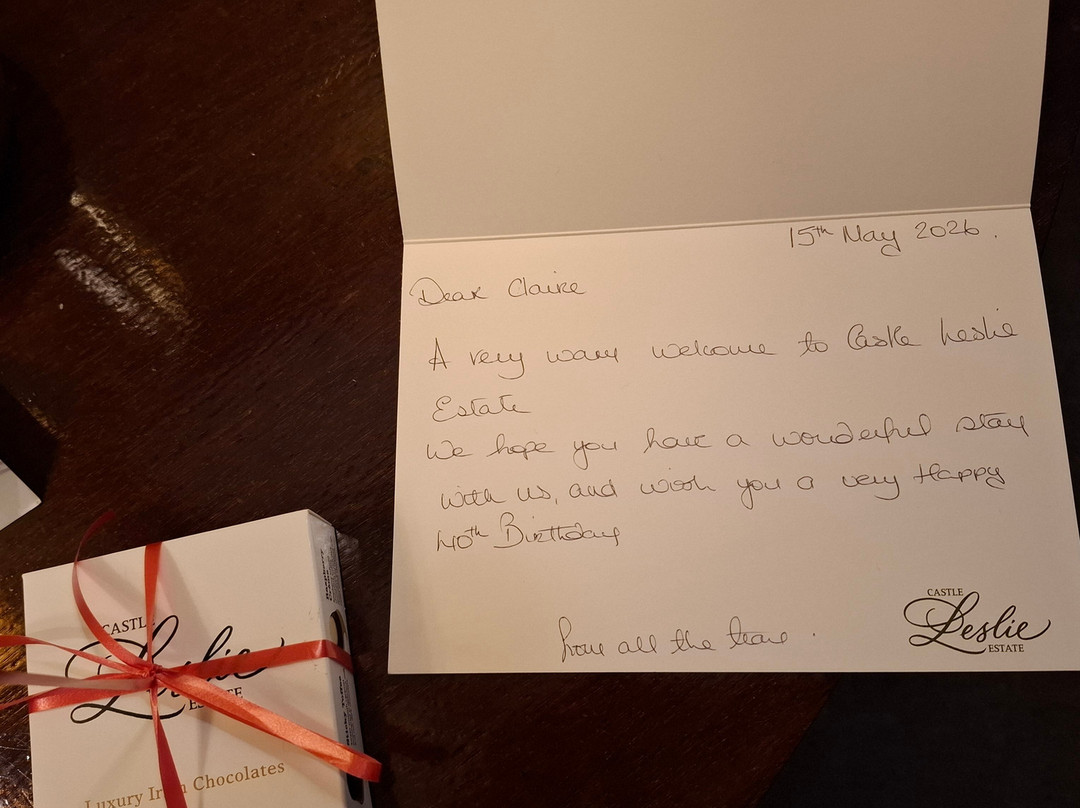 15th May 2026.
Dear Claire
A very warm welcome to Castle Leslie
Estate
We hope you have a wonderful stay
with us, and wish you a very Happy
40th Birthday
from all the team.
CASTLE
Leslie
ESTATE
CASTLE
Leslie
ESTATE
Luxury Irish Chocolates